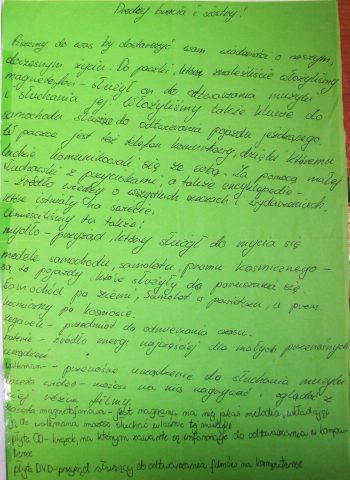 Drodzy bracia i siostry!
Piszemy do was by dostarczyć wam wiadomości o naszym,
doczesnym życiu. Do paczki, którą znaleźliście włożyliśmy
magnetofon - służył on do odtwarzania muzyki
i słuchania jej. Włożyliśmy także klucze do
samochodu służące do odtwierania pojazdu jeżdżącego
W paczce jest też telefon komórkowy, dzięki któremu
ludzie komunikowali się ze sobą, za pomocą małej
słuchawki z przyciskami, a także encyklopedie -
- źródło wiedzy o wszystkich rzeczach i wydarzeniach,
które istniały na świecie.
Umieściliśmy tu także:
mydło - przyrząd, który służył do mycia się
modele samochodu, samolotu, promu kosmicznego -
są to pojazdy, które służyły do poruszania się.
Samochód po ziemi, samolot w powietrzu, a prom
kosmiczny po kosmosie.
zegarek - przedmiot do odmierzania czasu.
baterie - źródło energi najczęściej dla małych przenośnych
urządzeń
walkman - przenośne urządzenie do słuchania muzyki
kaseta wideo - można na nią nagrywać i oglądać z
niej różne filmy.
kaseta magnetofonowa - jest nagrana na niej jakaś melodia, wkładając
ją do walkmana można słuchać właśnie tej muzyki
płyta CD - krążek, na którym zawarte są informacje do odtwarzania w kompu-
terze
płyta DVD - przyrząd służący do odtwarzania filmów na komputerze